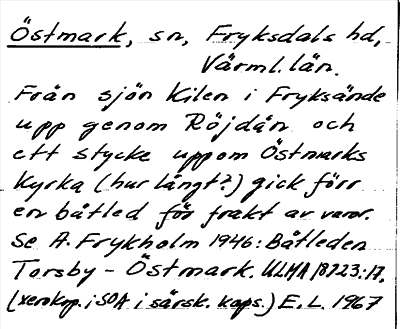 Östmark, sn, Fryksdals hd,
Värml. län.
Från sjön Kilen i Fryksände
upp genom Röjdån och
ett stycke uppom Östmarks
kyrka (hur långt?) gick förr
en båtled för frakt av varor.
Se A. Frykholm 1946: Båtleden
Torsby - Östmark. ULMA 18223:17.
(xerokop. i SOA i särsk. kaps.) E.L. 1967